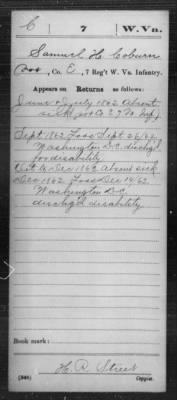 C 7 W. Va.
Samuel H. Coburn
Co. E, 7 Reg't W. Va. Infantry.
Appears on Returns as follows:
June & July 1862 Absent
sick
Sept 1862 Loss Sept 26/62
Washington D.C. dischg'd
for disability
Oct & Dec 1862 Absent sick
Dec 1862 Loss Dec 14/62
Washington D.C.
dischg'd disability
Book mark:
H. R. Street
(546) Copyist.